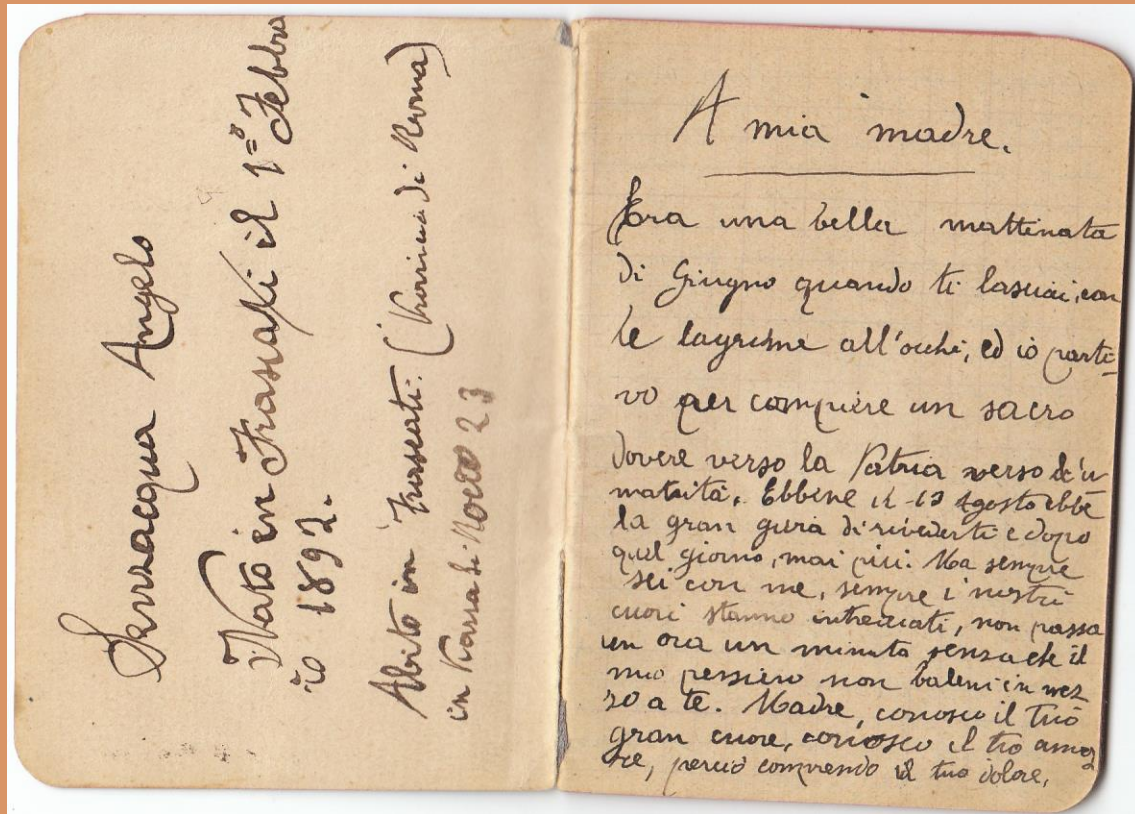 Serraacqua Angelo
Nato in Frascati il 1º Febbra
io 1892.
Abito in Frascati. (Provincia di Roma)
in Piazza S. Rocco 23
A mia madre.
Era una bella mattinata
di Giugno quando ti lasciai, con
le lagrime all'occhi, ed io parti-
vo per compiere un sacro
dovere verso la Patria verso
Ebbene il 13 Agosto ebbe
la gran di rivederti e dopo
quel giorno, mai più. Ma sempre
sei con me, sempre i nostri
cuori stanno intrecciati, non passa
un ora un minuto senza che il
mio pensiero non baleni in mez
zo a te. Madre, conosco il tuo
gran cuore, conosco il tuo amo
re, perciò comprendo il tuo dolore,